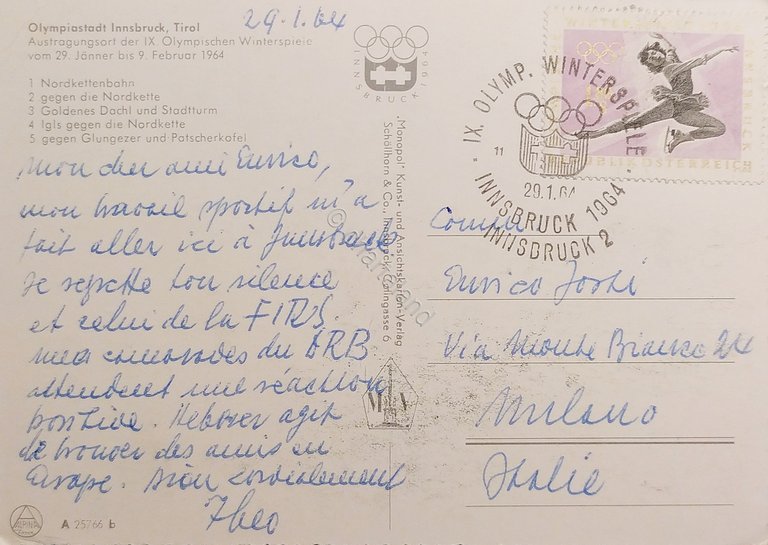 29.1.64
Olympiastadt Innsbruck, Tirol
Austragungsort der IX. Olympischen Winterspiele
vom 29. Jänner bis 9. Februar 1964
1 Nordkettenbahn
2 gegen die Nordkette
3 Goldenes Dachl und Stadtturm
4 Igls gegen die Nordkette
5 gegen Glungezer und Patscherkofel
Mon cher ami Enrico,
mon travail sportif m'a
fait aller ici à Innsbruck
Je regrette ton silence
et celui de la FIRS.
mes camarades du
attendent une réaction
positive. agit
de trouver des amis en
Europe. Bien cordialement
Theo
ALPINA
A 25766 b
INNSBRUCK 1964
"Monopol" Kunst- und Ansichtskarten-Verlag
Schöllhorn & Co., Innsbruck,
IX. OLYMP. WINTERSPIELE
11
29.1.64
INNSBRUCK 1964
INNSBRUCK 2
REPUBLIK ÖSTERREICH
Enrico
Via Monte Bianco 24
Milano
Italie